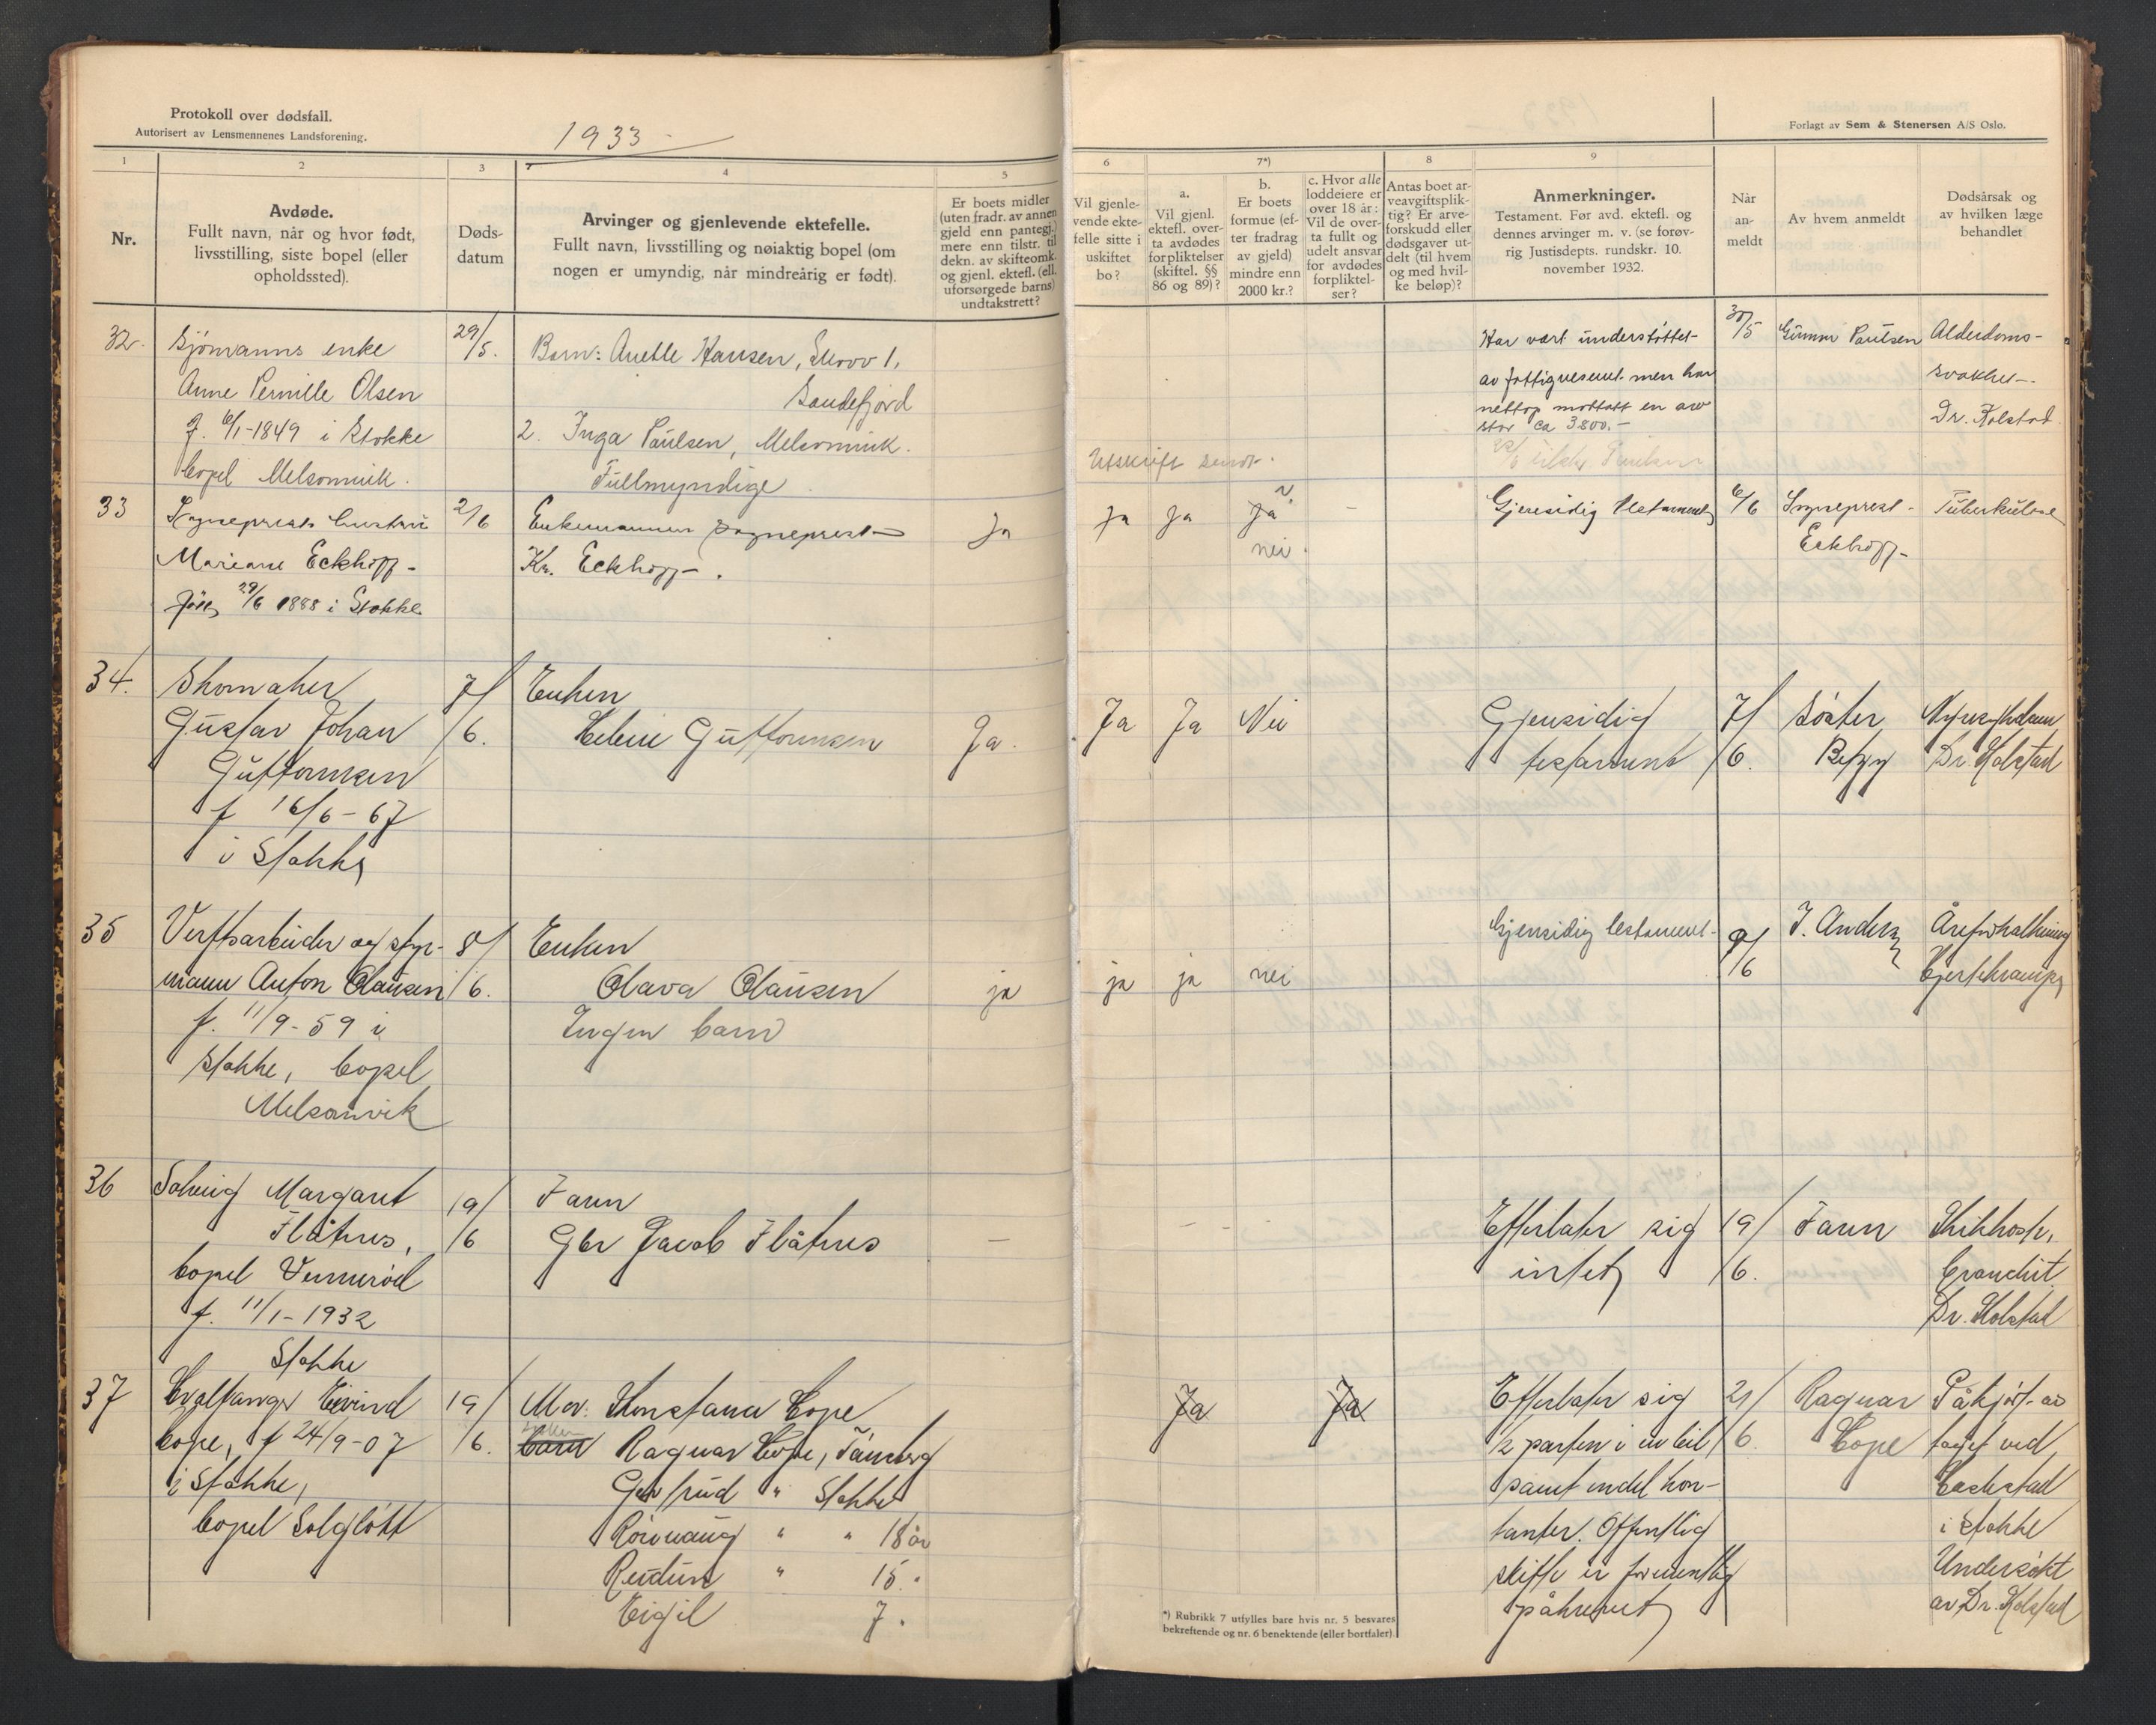 Protokoll over dødsfall.
Autorisert av Lensmennenes Landsforening.
1933
Forlagt av Sem & Stenersen A/S Oslo.
1
2
3
4
5
6
7*)
8
9
Nr.
Avdøde.
Fullt navn, når og hvor født,
livsstilling, siste bopel (eller
opholdssted).
Døds-
datum
Arvinger og gjenlevende ektefelle.
Fullt navn, livsstilling og nøiaktig bopel (om
nogen er umyndig, når mindreårig er født).
Er boets midler
(uten fradr. av annen
gjeld enn pantegj.)
mere enn tilstr. til
dekn. av skifteomk.
og gjenl. ektefl. (ell.
uforsørgede barns)
undtakstrett?
Vil gjenle-
vende ekte-
felle sitte i
uskiftet
bo?
a.
Vil gjenl.
ektefl. over-
ta avdødes
forpliktelser
(skiftel. §§
86 og 89)?
b.
Er boets
formue (ef-
ter fradrag
av gjeld)
mindre enn
2000 kr.?
c. Hvor alle
loddeiere er
over 18 år:
Vil de over-
ta fullt og
udelt ansvar
for avdødes
forpliktel-
ser?
Antas boet ar-
veavgiftsplik-
tig? Er arve-
forskudd eller
dødsgaver ut-
delt (til hvem
og med hvil-
ke beløp)?
Anmerkninger.
Testament. Før avd. ektefl. og
dennes arvinger m. v. (se forøv-
rig Justisdepts. rundskr. 10.
november 1932.
Når
an-
meldt
Av hvem anmeldt
Dødsårsak og
av hvilken læge
behandlet
32.
Sjømanns enke
Anne Pernille Olsen
f. 6/1-1849 i Stokke
bopel Melsomvik.
29/5.
Barn: Anette Hansen, 1,
Sandefjord
2. Inga Paulsen, Melsomvik.
Fullmyndige
Utskrift sendt.
Har vært understøttet
av fattigvesenet men har
nettop mottatt en arv
stor ca 3800.-
30/5
Gunnar Paulsen
Alderdoms-
svakhet.
Dr. Kolstad
33
Sogneprest hustru
Mariane Eckhoff
født 29/6 1888 i Stokke
2/6
Enkemannen sogneprest
Kr. Eckhoff.
Ja
Ja
Ja
Ja
nei.
-
Gjensidig testament
6/6
Sogneprest
Eckhoff
Tuberkulose
34.
Skomaker
Gustav Johan
Guttormsen
f 16/6-67
i Stokke
7/6.
Enken
Helene Guttormsen
Ja.
Ja
Ja
Nei
Gjensidig
testament
7/6.
Søster
Betzy
Nyresykdom
Dr. Kolstad
35
Verftsarbeider og styr-
mann Anton Clausen
f. 11/9-59 i
Stokke, bopel
Melsomvik
8/6.
Enken
Olava Clausen
Ingen barn
ja
ja
ja
nei
Gjensidig testament
9/6
J. Anders
Åreforkalkning
Hjertekrampe
36
Solveig Margaret
Flåtnes,
bopel Vennerød
f. 11/1-1932
Stokke
19/6
Faren
Gbr Jacob Flåtnes
-
- -
Efterlater sig
intet
19/6.
Faren
Kikhoste,
bronchit
Dr. Kolstad
37
Hvalfanger Eivind
Hope, f 24/9-07
i Stokke,
bopel Solgløtt
19/6.
Mor. Konstanse Hope
barn Ragnar Hope, Tønsberg
Gertrud " Stokke
Rønnaug " " 18 år
Reidun " 15.
Eigil 7.
Ja
Ja
Efterlater sig
1/2 parten i en bil
samt endel kon-
tanter. Offentlig
skifte er formentlig
påkrevet
21/6
Ragnar
Hope
Påkjørt av
toget ved
i Stokke
Undersøkt
av Dr. Kolstad
*) Rubrikk 7 utfylles bare hvis nr. 5 besvares
bekreftende og nr. 6 benektende (eller bortfaler).